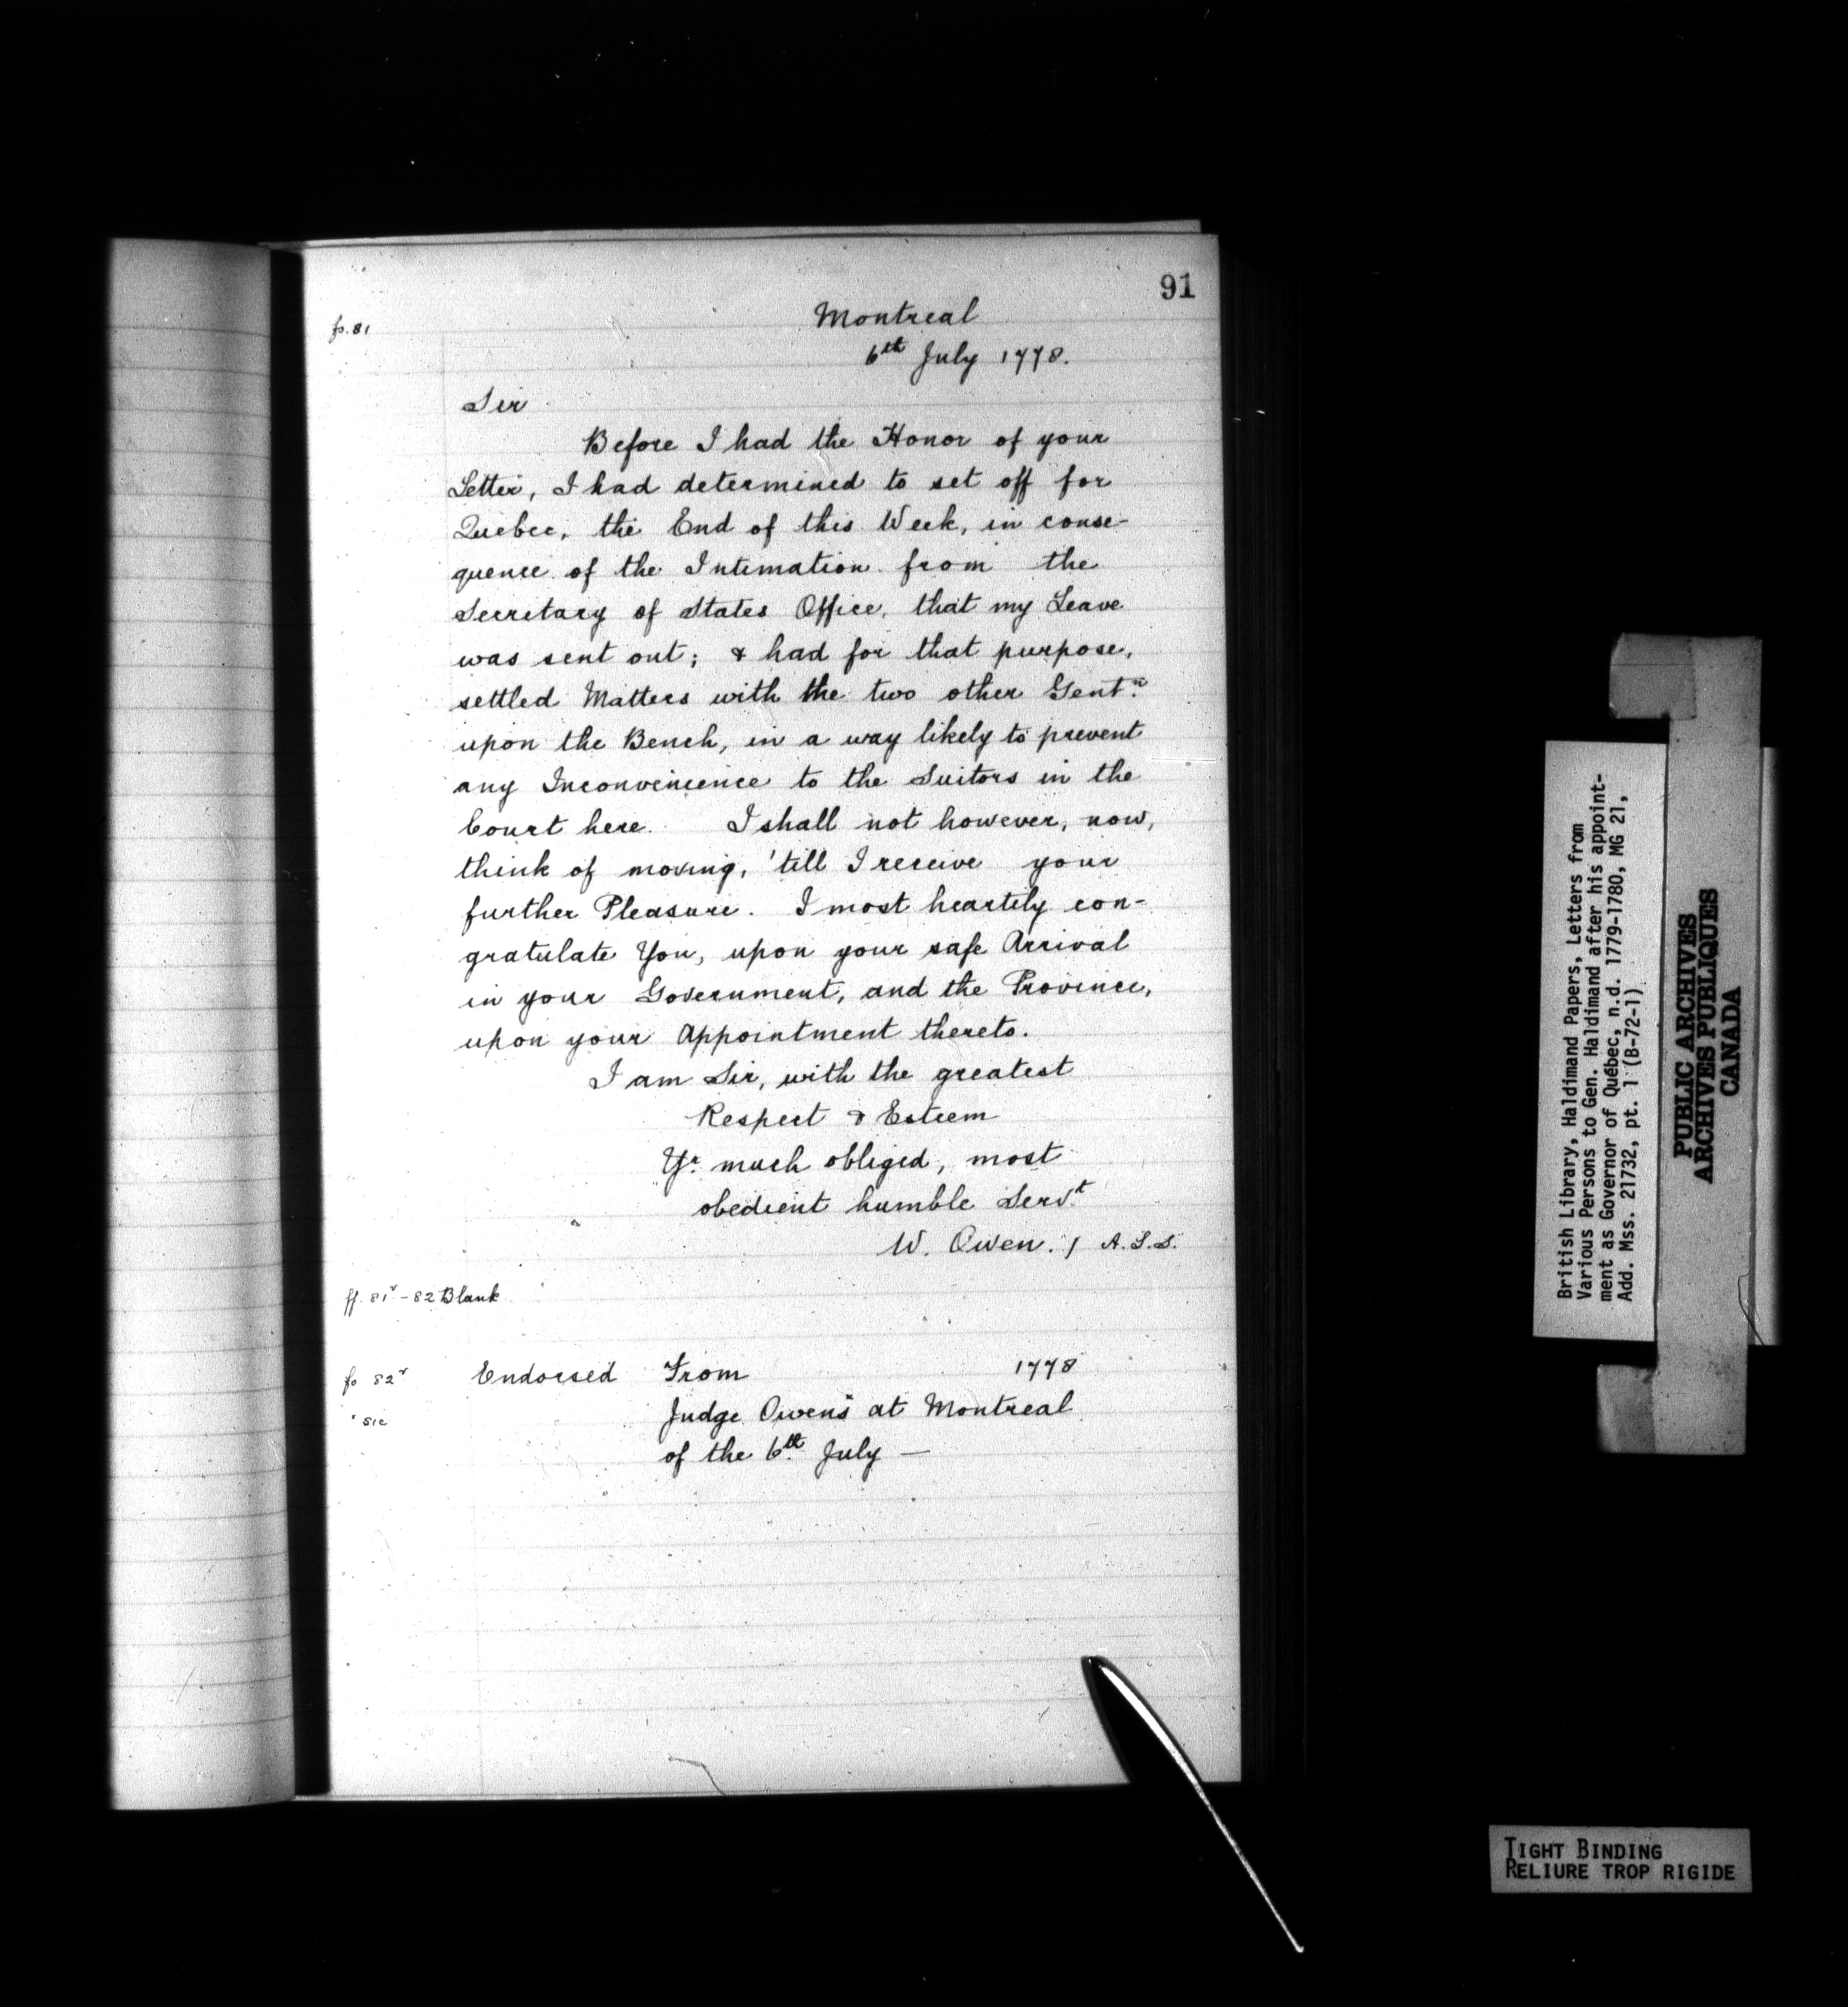 91
fo. 81
Montreal
6th July 1778.
Sir
Before I had the Honor of your
Letter, I had determined to set off for
Quebec, the End of this Week, in conse-
quence of the Intimation from the
Secretary of States Office, that my Leave
was sent out; & had for that purpose,
settled Matters with the two other Gentn.
upon the Bench, in a way likely to prevent
any Inconvenience to the Suitors in the
Court here. I shall not however, now,
think of moving, 'till I receive your
further Pleasure. I most heartely con-
gratulate You, upon your safe Arrival
in your Government, and the Province,
upon your Appointment thereto.
I am Sir, with the greatest
Respect & Esteem
Yr. much obliged, most
obedient humble Servt.
W. Owen. / A.L.S.
ff. 81v - 82 Blank
fo 82v Endorsed From 1778
* sic Judge Owens* at Montreal
of the 6th. July —
British Library, Haldimand Papers, Letters from
Various Persons to Gen. Haldimand after his appoint-
ment as Governor of Québec, n.d. 1779-1780, MG 21,
Add. Mss. 21732, pt. 1 (B-72-1)
PUBLIC ARCHIVES
ARCHIVES PUBLIQUES
CANADA
TIGHT BINDING
RELIURE TROP RIGIDE